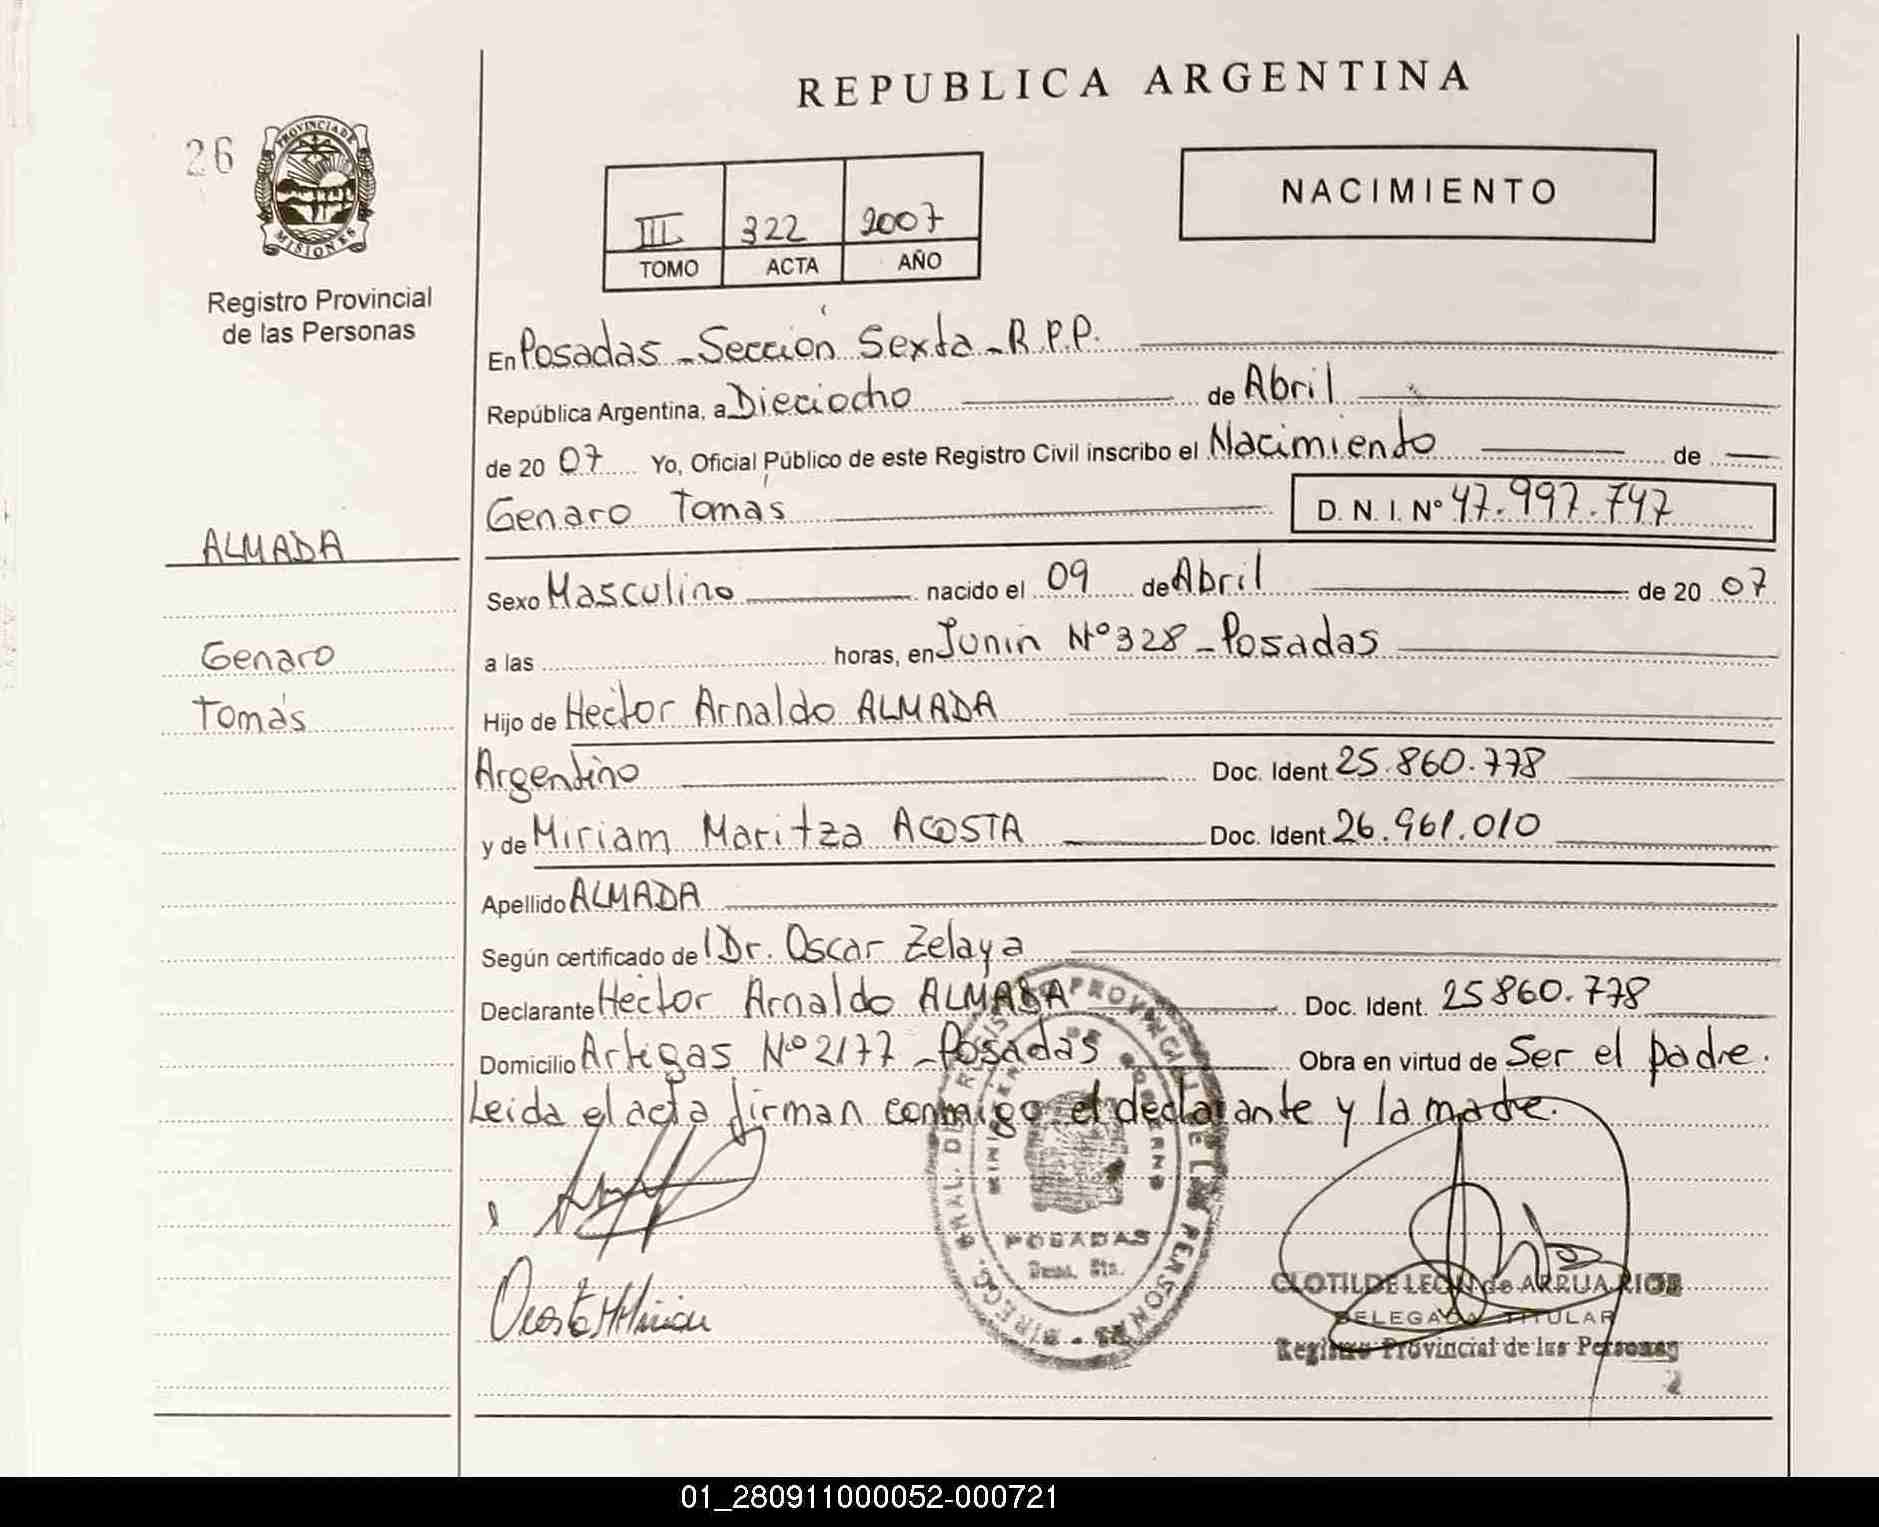 REPUBLICA ARGENTINA
26
PROVINCIA DE MISIONES
Registro Provincial
de las Personas
III 322 2007
TOMO ACTA AÑO
NACIMIENTO
En Posadas - Sección Sexta - R.P.P.
República Argentina, a Dieciocho de Abril
de 20 07 Yo, Oficial Público de este Registro Civil inscribo el Nacimiento de
Genaro Tomás D. N. I. Nº 47.997.747
ALMADA
Sexo Masculino nacido el 09 de Abril de 20 07
Genaro
a las horas, en Junín Nº 328 - Posadas
Tomás
Hijo de Hector Arnaldo ALMADA
Argentino Doc. Ident. 25.860.778
y de Miriam Maritza ACOSTA Doc. Ident. 26.961.010
Apellido ALMADA
Según certificado de Dr. Oscar Zelaya
Declarante Hector Arnaldo ALMADA Doc. Ident. 25860.778
Domicilio Artigas Nº 2177 - Posadas Obra en virtud de Ser el padre.
Leida el acta firman conmigo el declarante y la madre.
DIREC. GRAL. DEL REGISTRO PROVINCIAL DE LAS PERSONAS
MINISTERIO DE GOBIERNO
POSADAS
Acosta Miriam
CLOTILDE LEON de ARRUA RIOS
DELEGADA TITULAR
Registro Provincial de las Personas
01_280911000052-000721